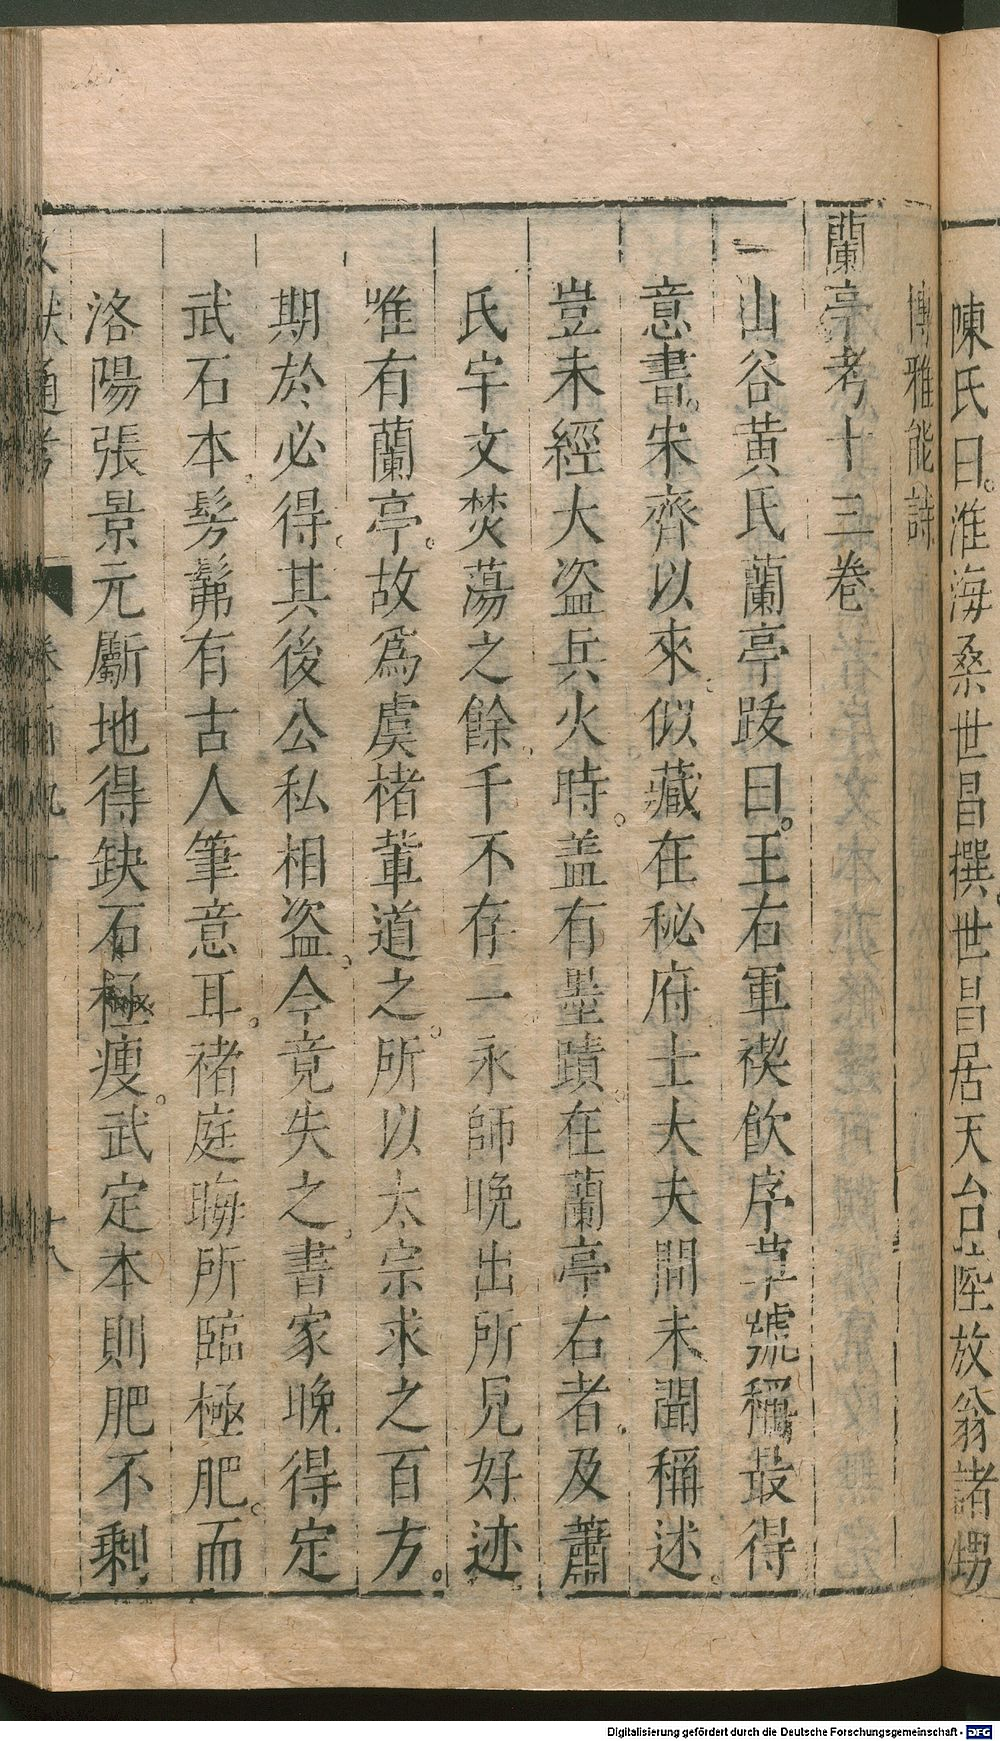 陳氏曰淮海桑世昌撰世昌居天台陸放翁諸甥
博雅能詩
蘭亭考十三卷
山谷黄氏蘭亭跋曰王右軍禊飲序草號稱最得
意書宋齊以來似藏在秘府士大夫間未聞稱述
豈未經大盜兵火時盖有墨蹟在蘭亭右者及蕭
氏宇文焚蕩之餘千不存一永師晚出所見好迹
唯有蘭亭故為虞楮輩道之所以太宗求之百方
期於必得其後公私相盜今竟失之書家晚得定
武石本髣髴有古人筆意耳禇庭誨所臨極肥而
洛陽張景元斸地得缺石極瘦武定本則肥不剩
通考
Digitalisierung gefördert durch die Deutsche Forschungsgemeinschaft - DFG